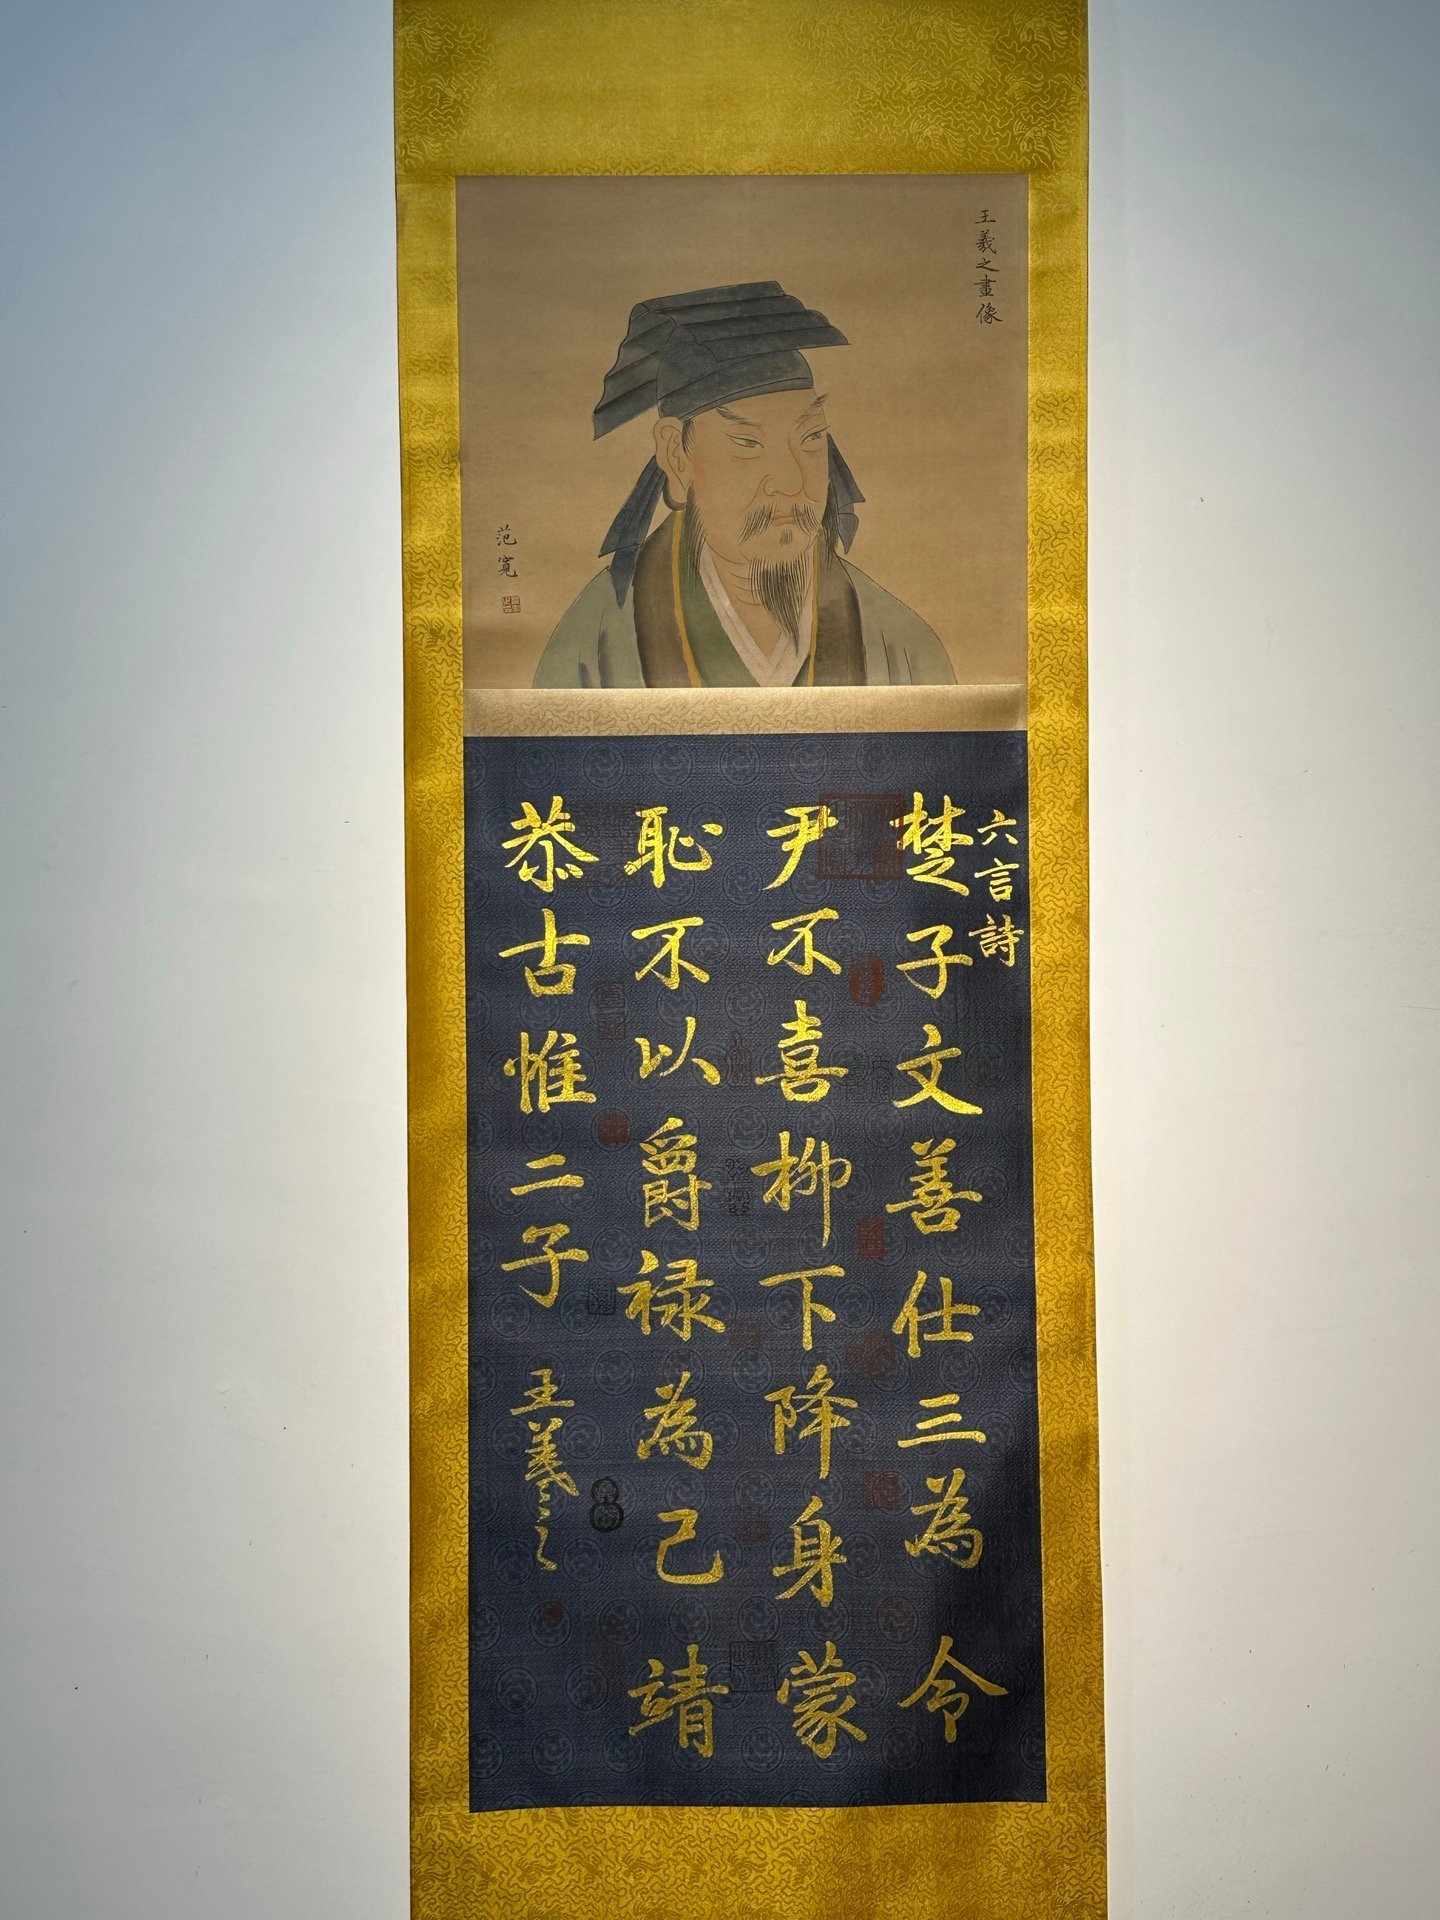 王羲之畫像
范寬
六言詩
楚子文善仕三為令
尹不喜柳下降身蒙
恥不以爵禄為己靖
恭古惟二子
王羲之